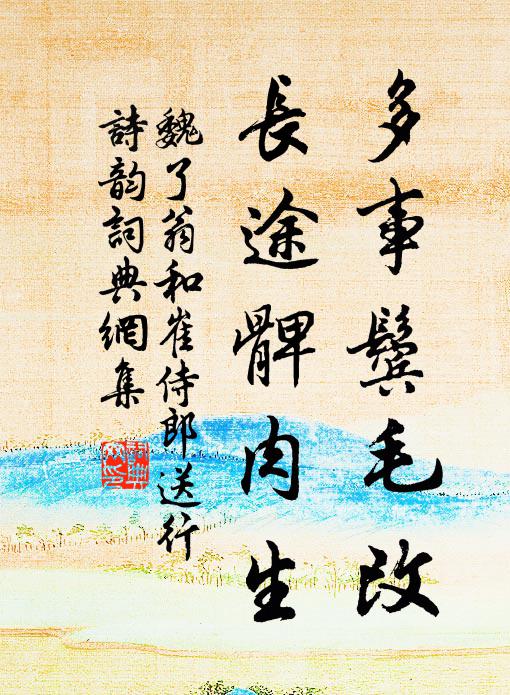 多事鬓毛改
長途髀肉生
魏了翁和崔侍郎送行
詩韵詞典網集